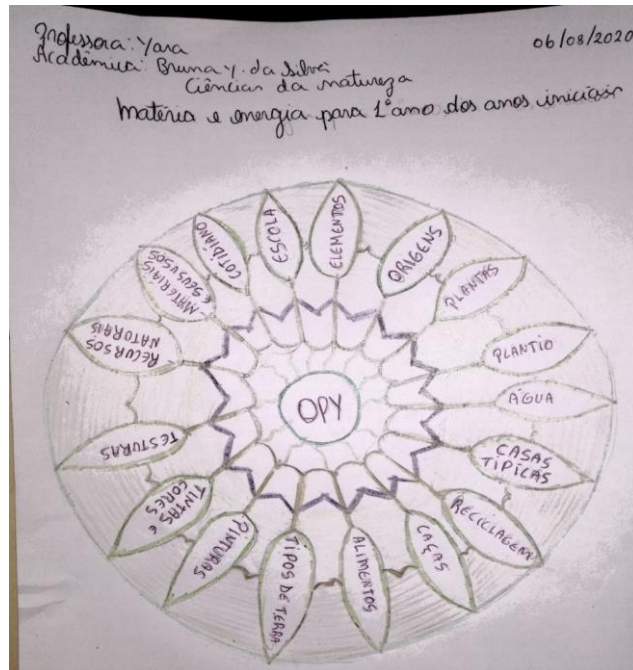 Professora: Yara
06/08/2020
Acadêmica: Bruna Y. da Silva
Ciências da natureza
Matéria e energia para 1º ano dos anos iniciais
ELEMENTOS
ORIGENS
PLANTAS
PLANTIO
ÁGUA
CASAS
TÍPICAS
RECICLAGEM
CAÇAS
ALIMENTOS
TIPOS DE TERRA
PINTURAS
TINTAS E
CORES
TESTURAS
RECURSOS
NATURAIS
MATERIAIS
E SEUS USOS
COTIDIANO
ESCOLA
OPY